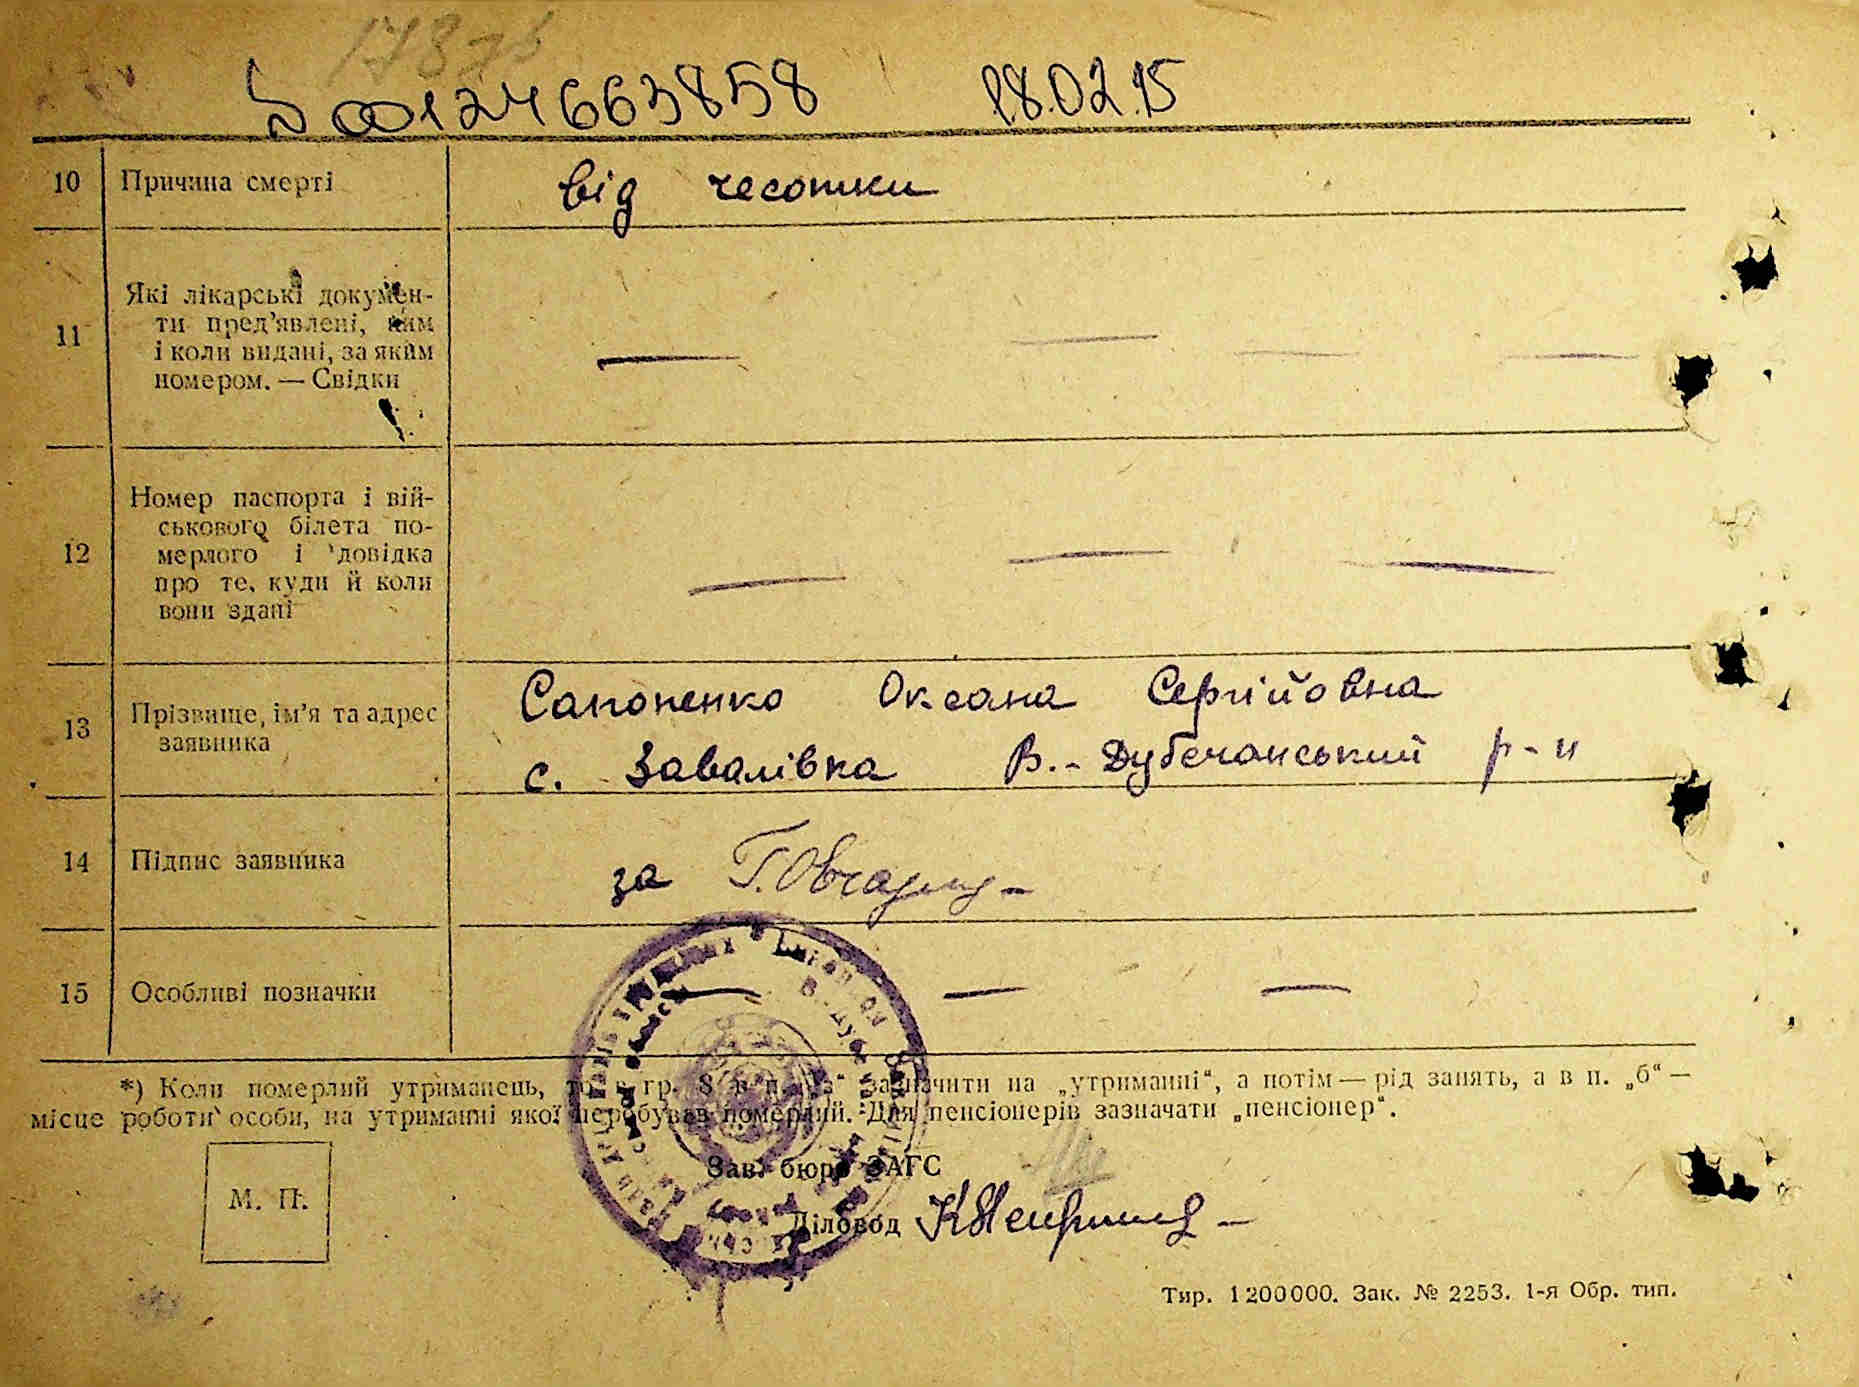 00124663858 18.02.15
10 Причина смерті від чесотки
11 Які лікарські докумен-
ти пред'явлені, ким
і коли видані, за яким
номером. — Свідки — — — —
12 Номер паспорта і вій-
ськового білета по-
мерлого і довідка
про те, куди й коли
вони здані — — —
13 Прізвище, ім'я та адрес
заявника
Сапоненко Оксана Сергійовна
с. Завалівка В.-Дубечанський р-н
14 Підпис заявника за
15 Особливі позначки — — —
*) Коли померлий утриманець, то в гр. 8 в п. „а“ зазначити на „утриманні“, а потім — рід занять, а в п. „б“ —
місце роботи особи, на утриманні якої перебував померлий. Для пенсіонерів зазначати „пенсіонер“.
Зав. бюро ЗАГС
М. П.
Діловод
Тир. 1 200 000. Зак. № 2253. 1-я Обр. тип.